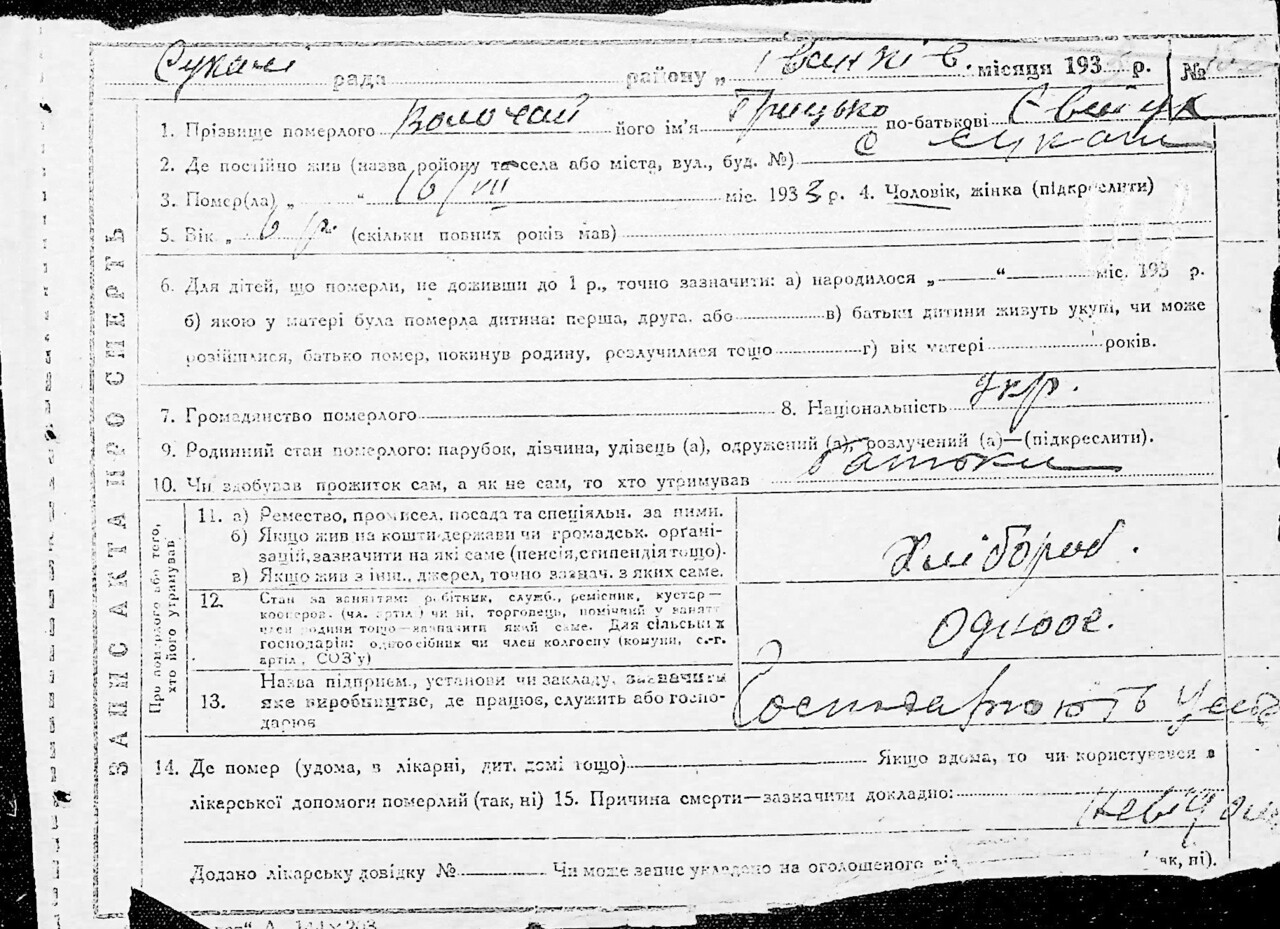 ЗАПИС АКТА ПРО СМЕРТЬ
Сукачі рада району „ Іванків. місяця 193 р. №
1. Прізвище померлого Волочай його ім'я Грицько по-батькові
2. Де постійно жив (назва району та села або міста, вул., буд. №) с Сукачі
3. Помер(ла) „ “ 16/VII міс. 1933 р. 4. Чоловік, жінка (підкреслити)
5. Вік „ 6 р. (скільки повних років мав)
6. Для дітей, що померли, не доживши до 1 р., точно зазначити: а) народилося „ “ міс. 193 р.
б) якою у матері була померла дитина: перша, друга, або в) батьки дитини живуть укупі, чи може
розійшлися, батько помер, покинув родину, розлучилися тощо г) вік матері років.
7. Громадянство померлого 8. Національність укр.
9. Родинний стан померлого: парубок, дівчина, удівець (а), одружений (а), розлучений (а)—(підкреслити).
10. Чи здобував прожиток сам, а як не сам, то хто утримував батьки
Про померлого або того, хто його утримував
11. а) Ремество, промисел, посада та спеціяльн. за ними.
б) Якщо жив на кошти держави чи громадськ. орґані-
зацій, зазначити на які саме (пенсія, стипендія тощо).
в) Якщо жив з інш., джерел, точно зазнач. з яких саме.
Хлібороб.
12. Стан за заняттям: робітник, служб., ремісник, кустар—
кооперов. (чл. артіл.) чи ні, торговець, помічний у занятт
член родини тощо—зазначити який саме. Для сільських
господарів: одноосібник чи член колгоспу (комуни, с.-г.
артіл., СОЗ'у)
Одноос.
13. Назва підприєм., установи чи закладу, зазначити
яке виробництво, де працює, служить або госпо-
дарює
Господарюють
14. Де помер (удома, в лікарні, дит. домі тощо) Якщо вдома, то чи користувався з
лікарської допомоги померлий (так, ні) 15. Причина смерти—зазначити докладно:
Невідом
Додано лікарську довідку № Чи може запис укладено на оголошеного від так, ні).